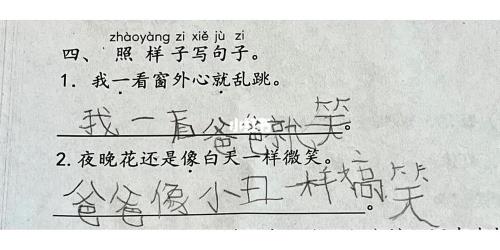 zhàoyàng zi xiě jù zi
四、照样子写句子。
1. 我一看窗外心就乱跳。
我一看爸爸就笑。
2. 夜晚花还是像白天一样微笑。
爸爸像小丑一样搞笑。